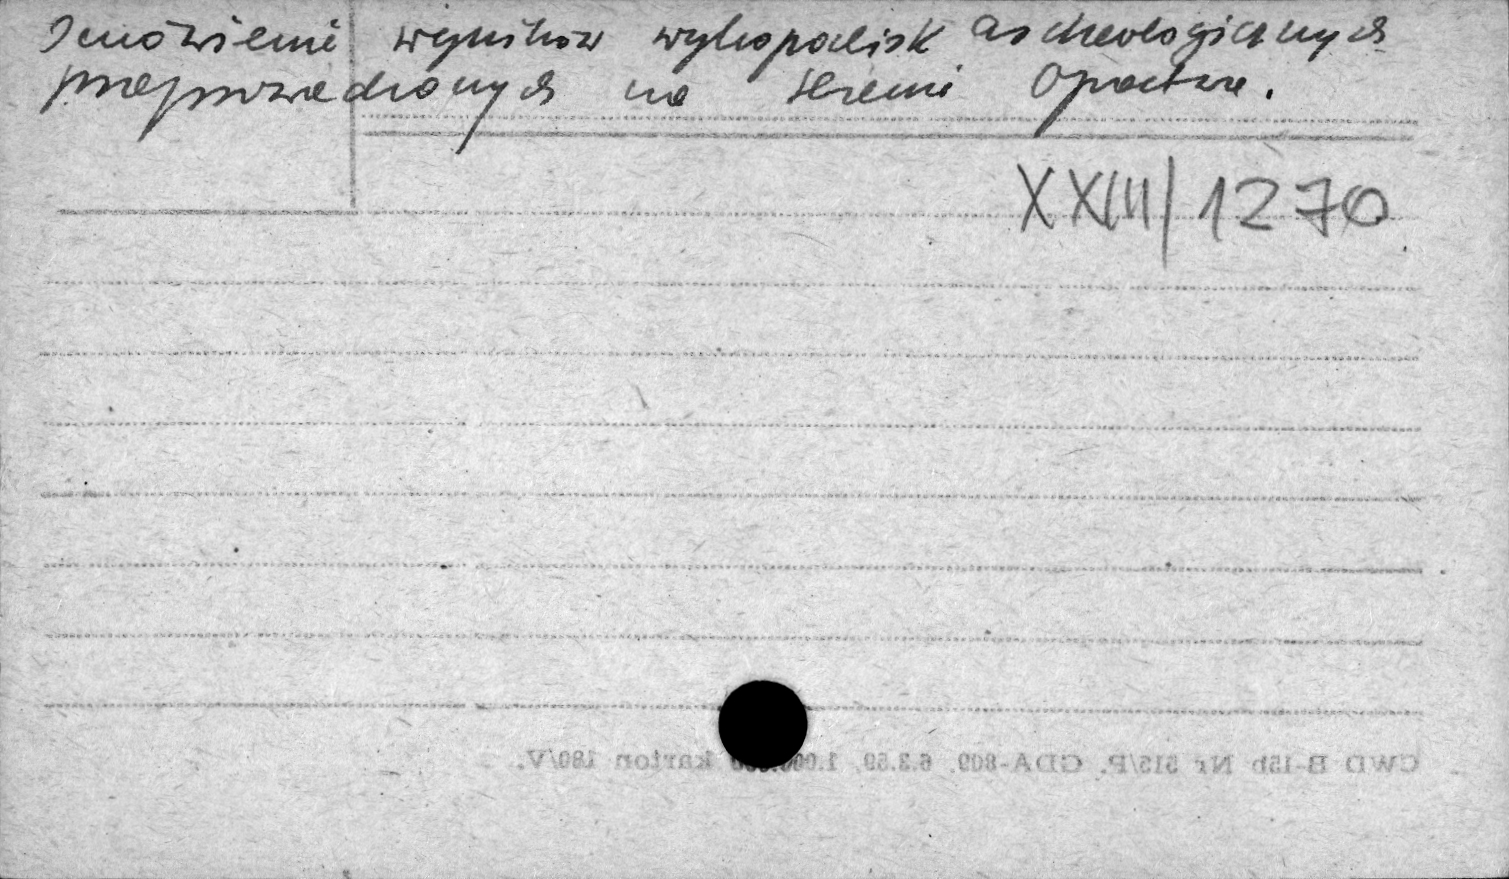 Omówienie wyników wykopalisk archeologicznych
przeprowadzonych na terenie Opactwa.
XXIII/1270
CWD B-15b Nr 515/P. GDA-809. 6.3.59. 1.000.000 karton 180/V.